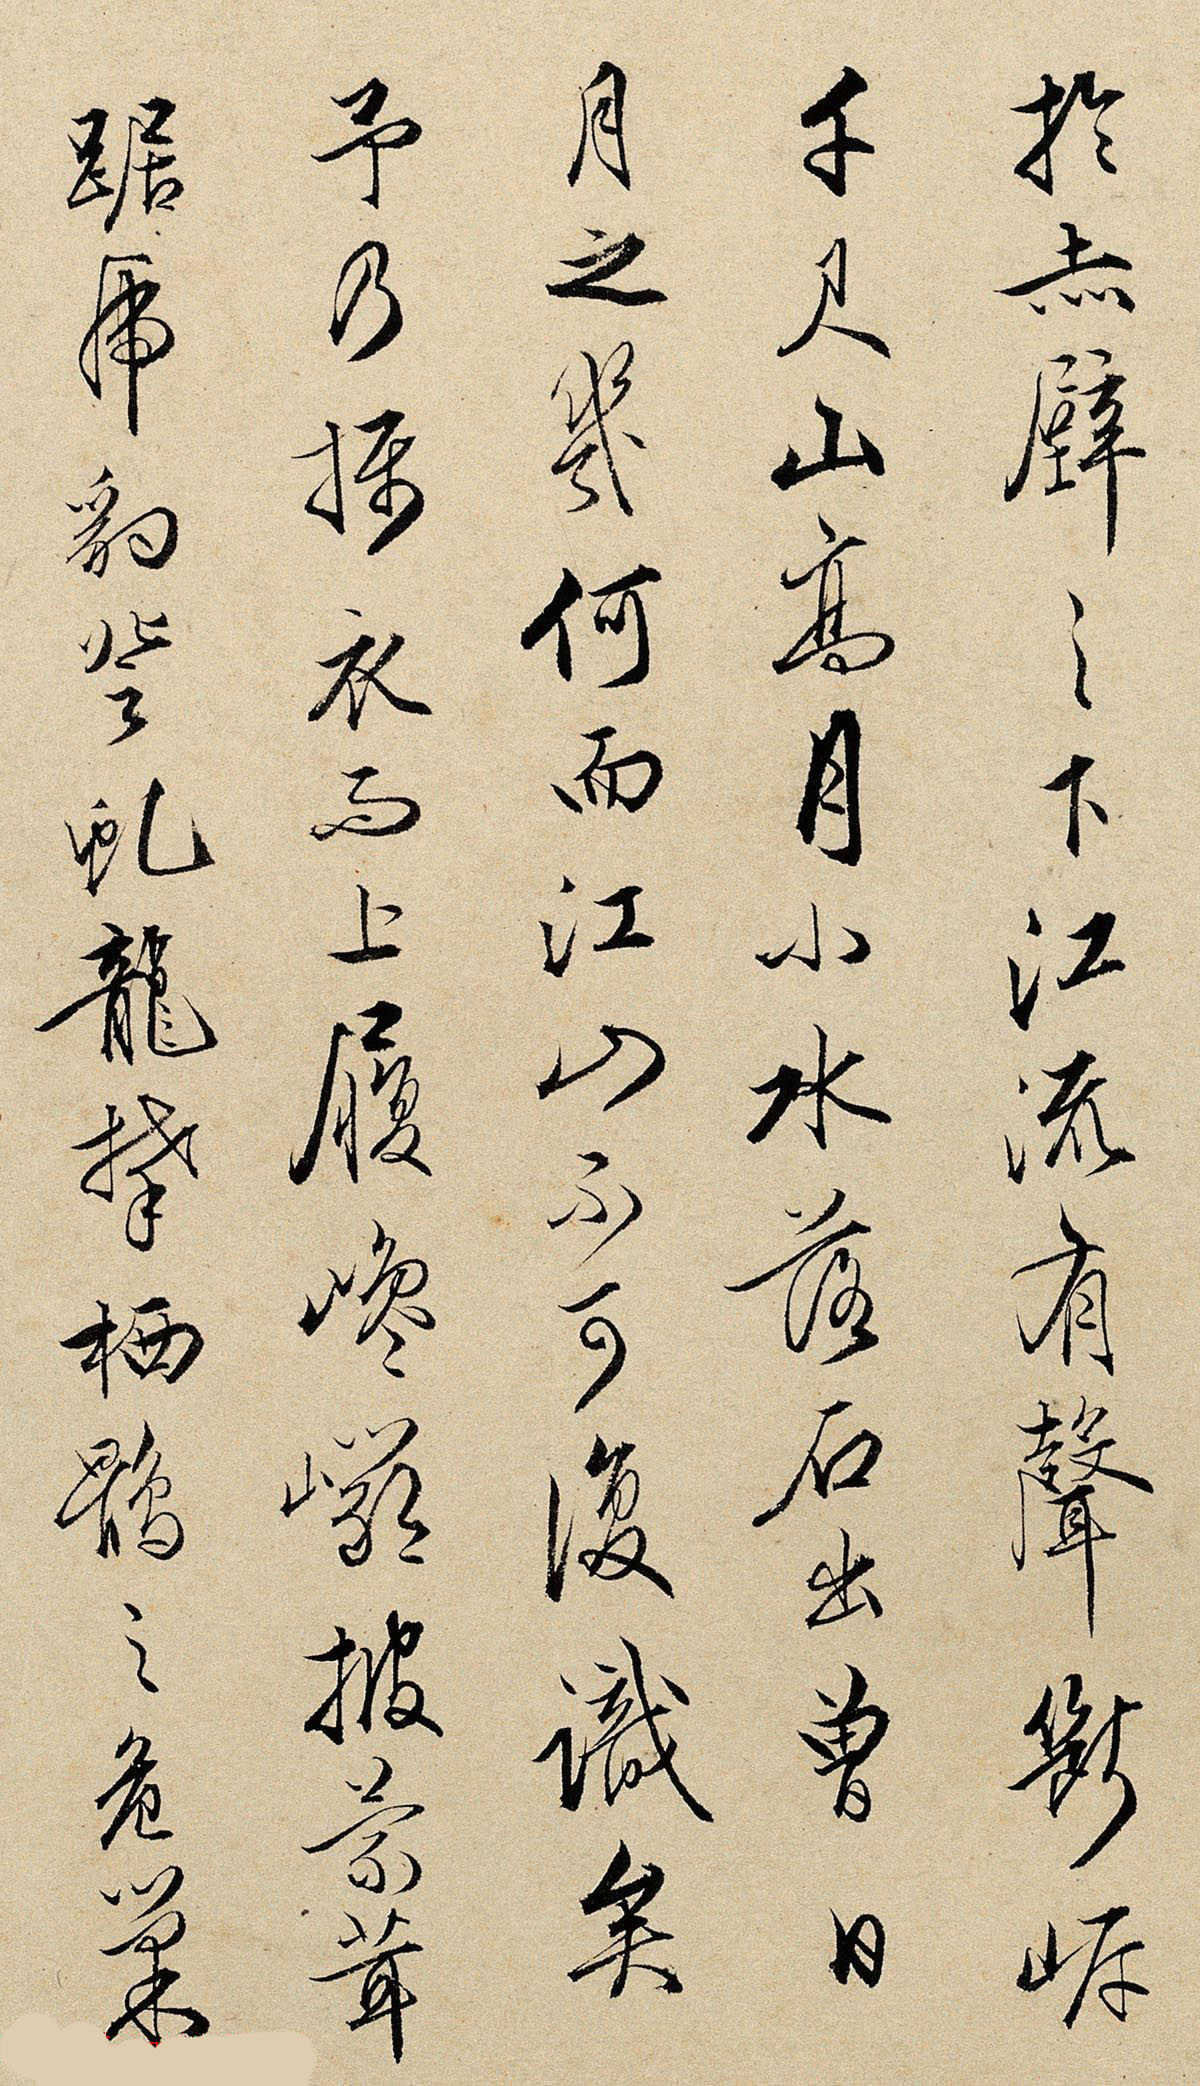 於赤壁之下江流有聲斷岸
千尺山高月小水落石出曾日
月之幾何而江山不可復識矣
予乃攝衣而上履巉巖披蒙茸
踞虎豹登虬龍攀栖鶻之危巢